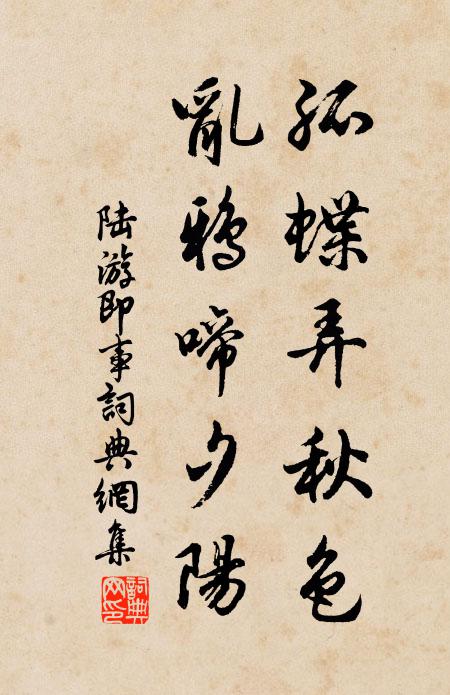 孤蝶弄秋色
亂鴉啼夕陽
陆游即事詞典網集
詞典網印